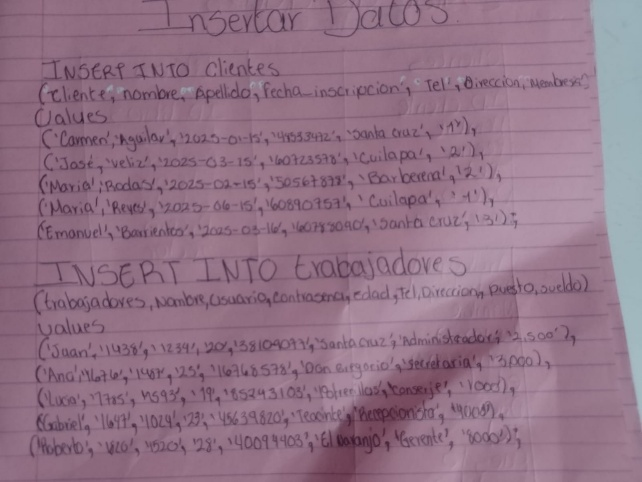 Insertar Datos
INSERT INTO Clientes
('Cliente, nombre, Apellido, fecha_inscripcion', Tel', Direccion, Membresia)
Values
('Carmen', 'Aguilar', '2025-01-15', 'Santa Cruz', '1'),
('José', 'veliz', '2025-03-15', '60723578', 'Cuilapa', '2'),
('Maria', 'Rodas', '2025-02-15', 'Barberena', '2'),
('Maria', 'Reyes', '2025-06-15', '60890757', 'Cuilapa', '1'),
(Emanuel', 'Barrientos', '2025-03-16', 'Santa Cruz', '3');
INSERT INTO trabajadores
(trabajadores, Nombre, Usuario, contrasena, edad, Tel, Direccion, Puesto, sueldo)
values
('Juan', '1438', '1234', '20', 'Santa Cruz', 'Administrador', '2,500'),
('Ana', '4676', '1487', '25', '16768578', 'Don Gregorio', 'secretaria', '3,000),
(Luca', '1785', '4593', '19', '85243103', 'Potrerillos', 'conserje', '1000),
(Gabriel', '1647', '1029', '23', '45639820', 'Tecuinte', 'Recepcionista', '4000),
('Roberto', '4520', '28', '40099403', 'El naranjo', 'Gerente', '8000');